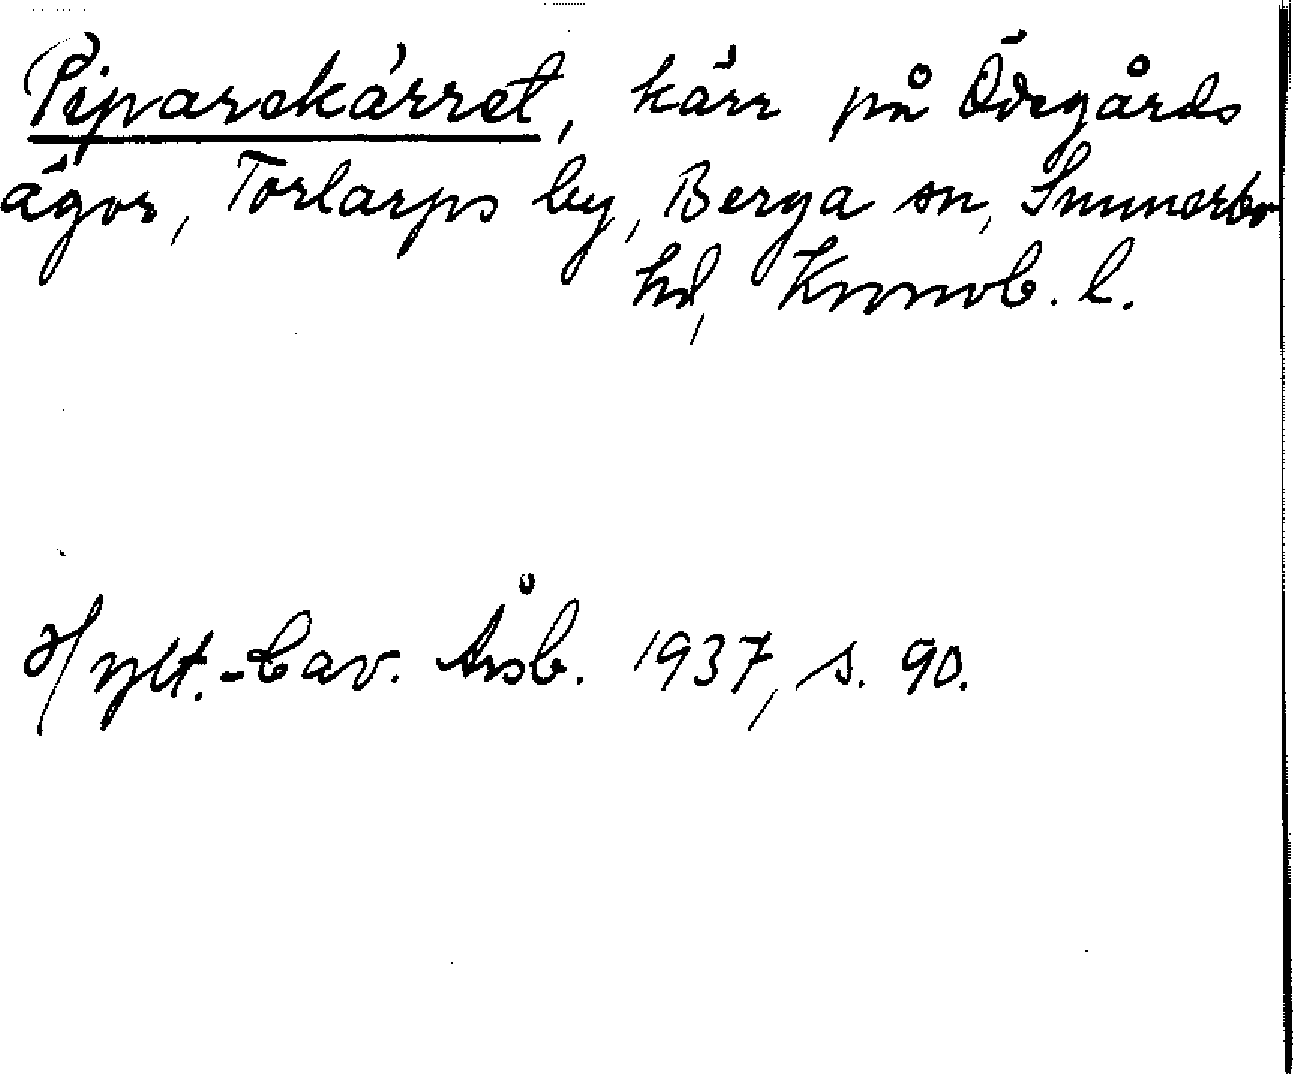 Piparekärret, kärr på Ödegårds
ägor, Torlarps by, Berga sn, Sunnerbo
hd, Kronob. l.
Hylt.-Cav. Årsb. 1937, s. 90.